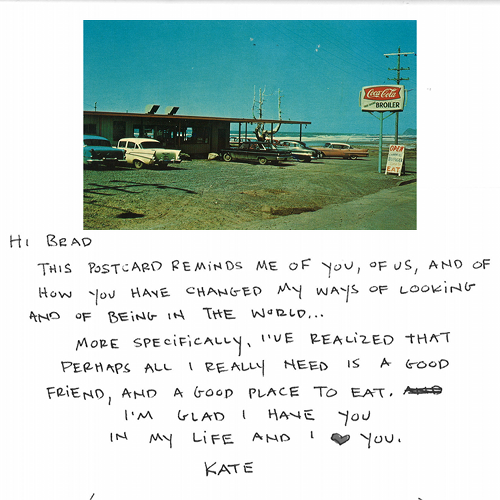 Coca-Cola
BROILER
OPEN
EAT
HI BRAD
THIS POSTCARD REMINDS ME OF YOU, OF US, AND OF
HOW YOU HAVE CHANGED MY WAYS OF LOOKING
AND OF BEING IN THE WORLD...
MORE SPECIFICALLY, I'VE REALIZED THAT
PERHAPS ALL I REALLY NEED IS A GOOD
FRIEND, AND A GOOD PLACE TO EAT.
I'M GLAD I HAVE YOU
IN MY LIFE AND I ♥ YOU.
KATE